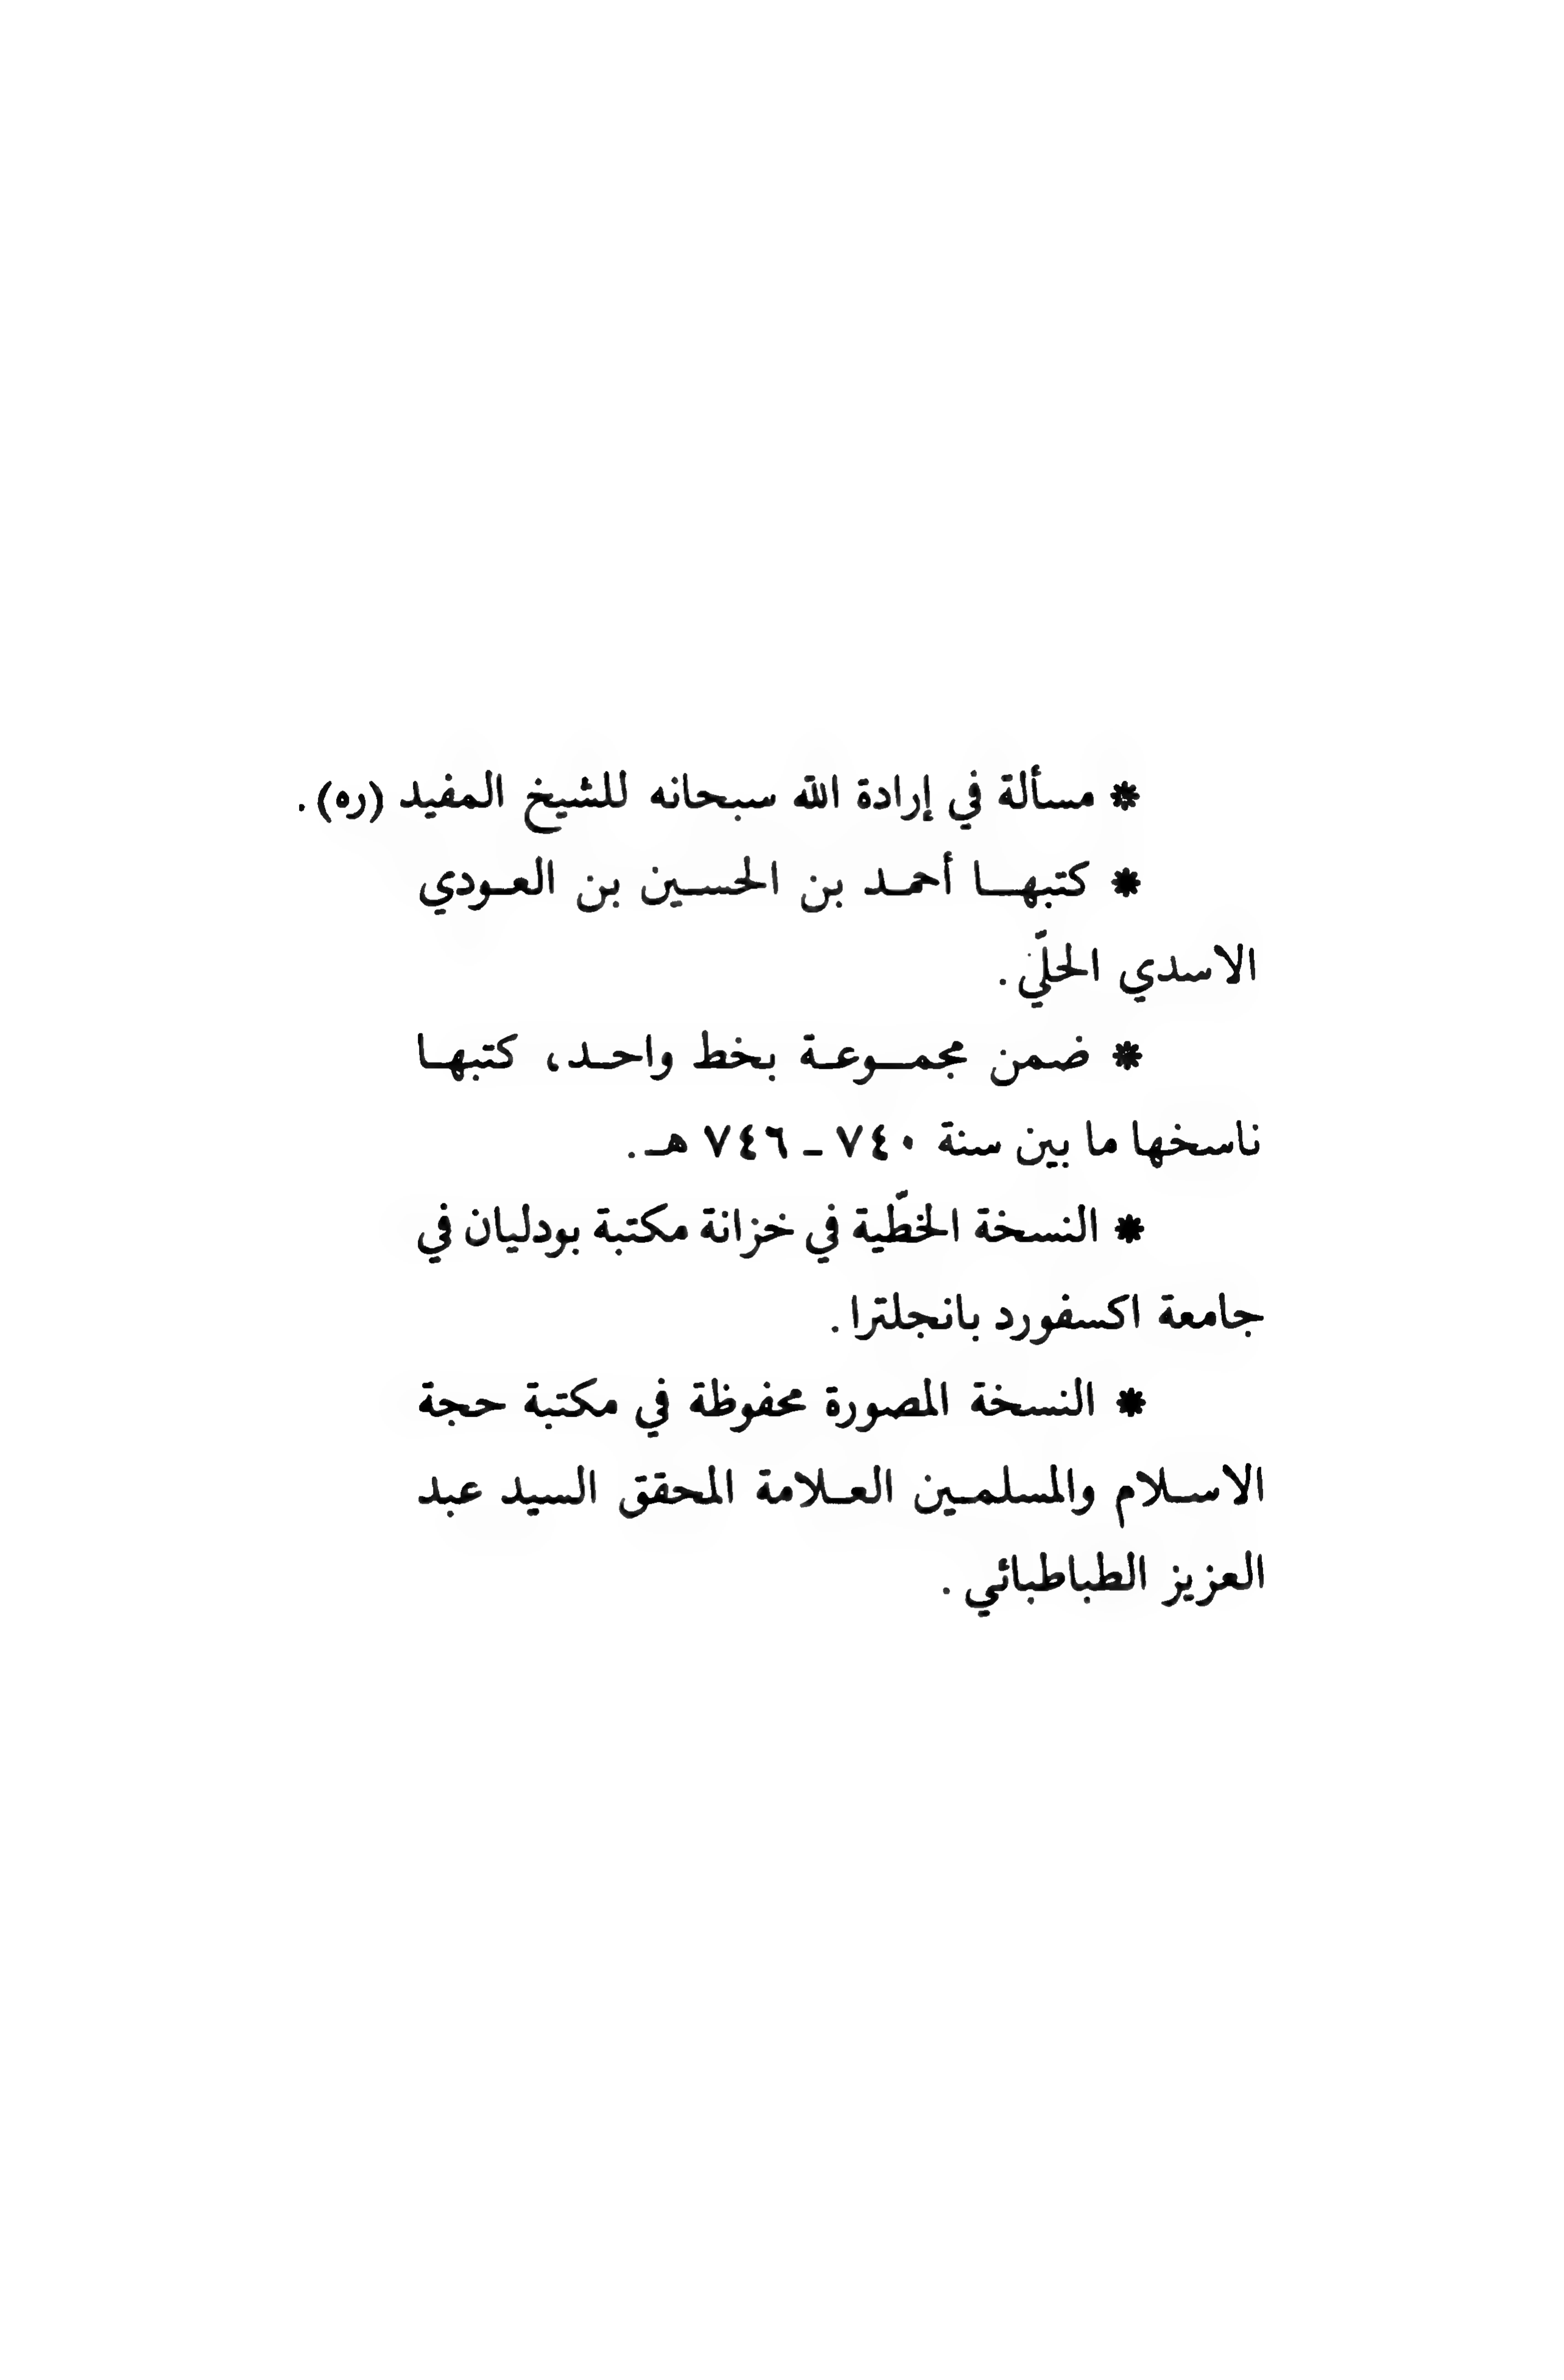 * مسألة في إرادة الله سبحانه للشيخ المفيد (ره).
* كتبهـا أحمد بن الحسين بن العودي
الاسدي الحلّي.
* ضمن مجموعة بخط واحد، كتبها
ناسخها ما بين سنة ٧٤٠ ـ ٧٤٦ هـ.
* النسخة الخطّية في خزانة مكتبة بودليان في
جامعة اكسفورد بانجلترا.
* النسخة المصورة محفوظة في مكتبة حجة
الاسلام والمسلمين العلامة المحقق السيد عبد
العزيز الطباطبائي.